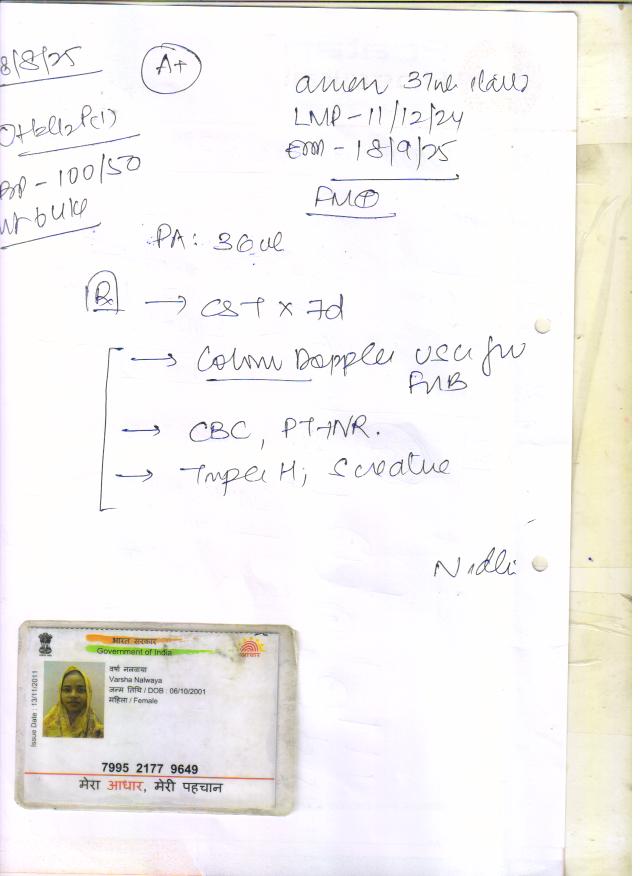 8/8/25
A+
37
LMP - 11/12/24
- 18/9/25
BP - 100/50
FM⊕
PA: 36
Rx → CST x 7d
→ Colour Doppler USG for FWB
→ CBC, PT INR.
→ Triple H; S creatine
Nidhi
भारत सरकार
Government of India
आधार
वर्षा नलवाया
Varsha Nalwaya
जन्म तिथि / DOB : 06/10/2001
महिला / Female
Issue Date : 13/11/2011
7995 2177 9649
मेरा आधार, मेरी पहचान